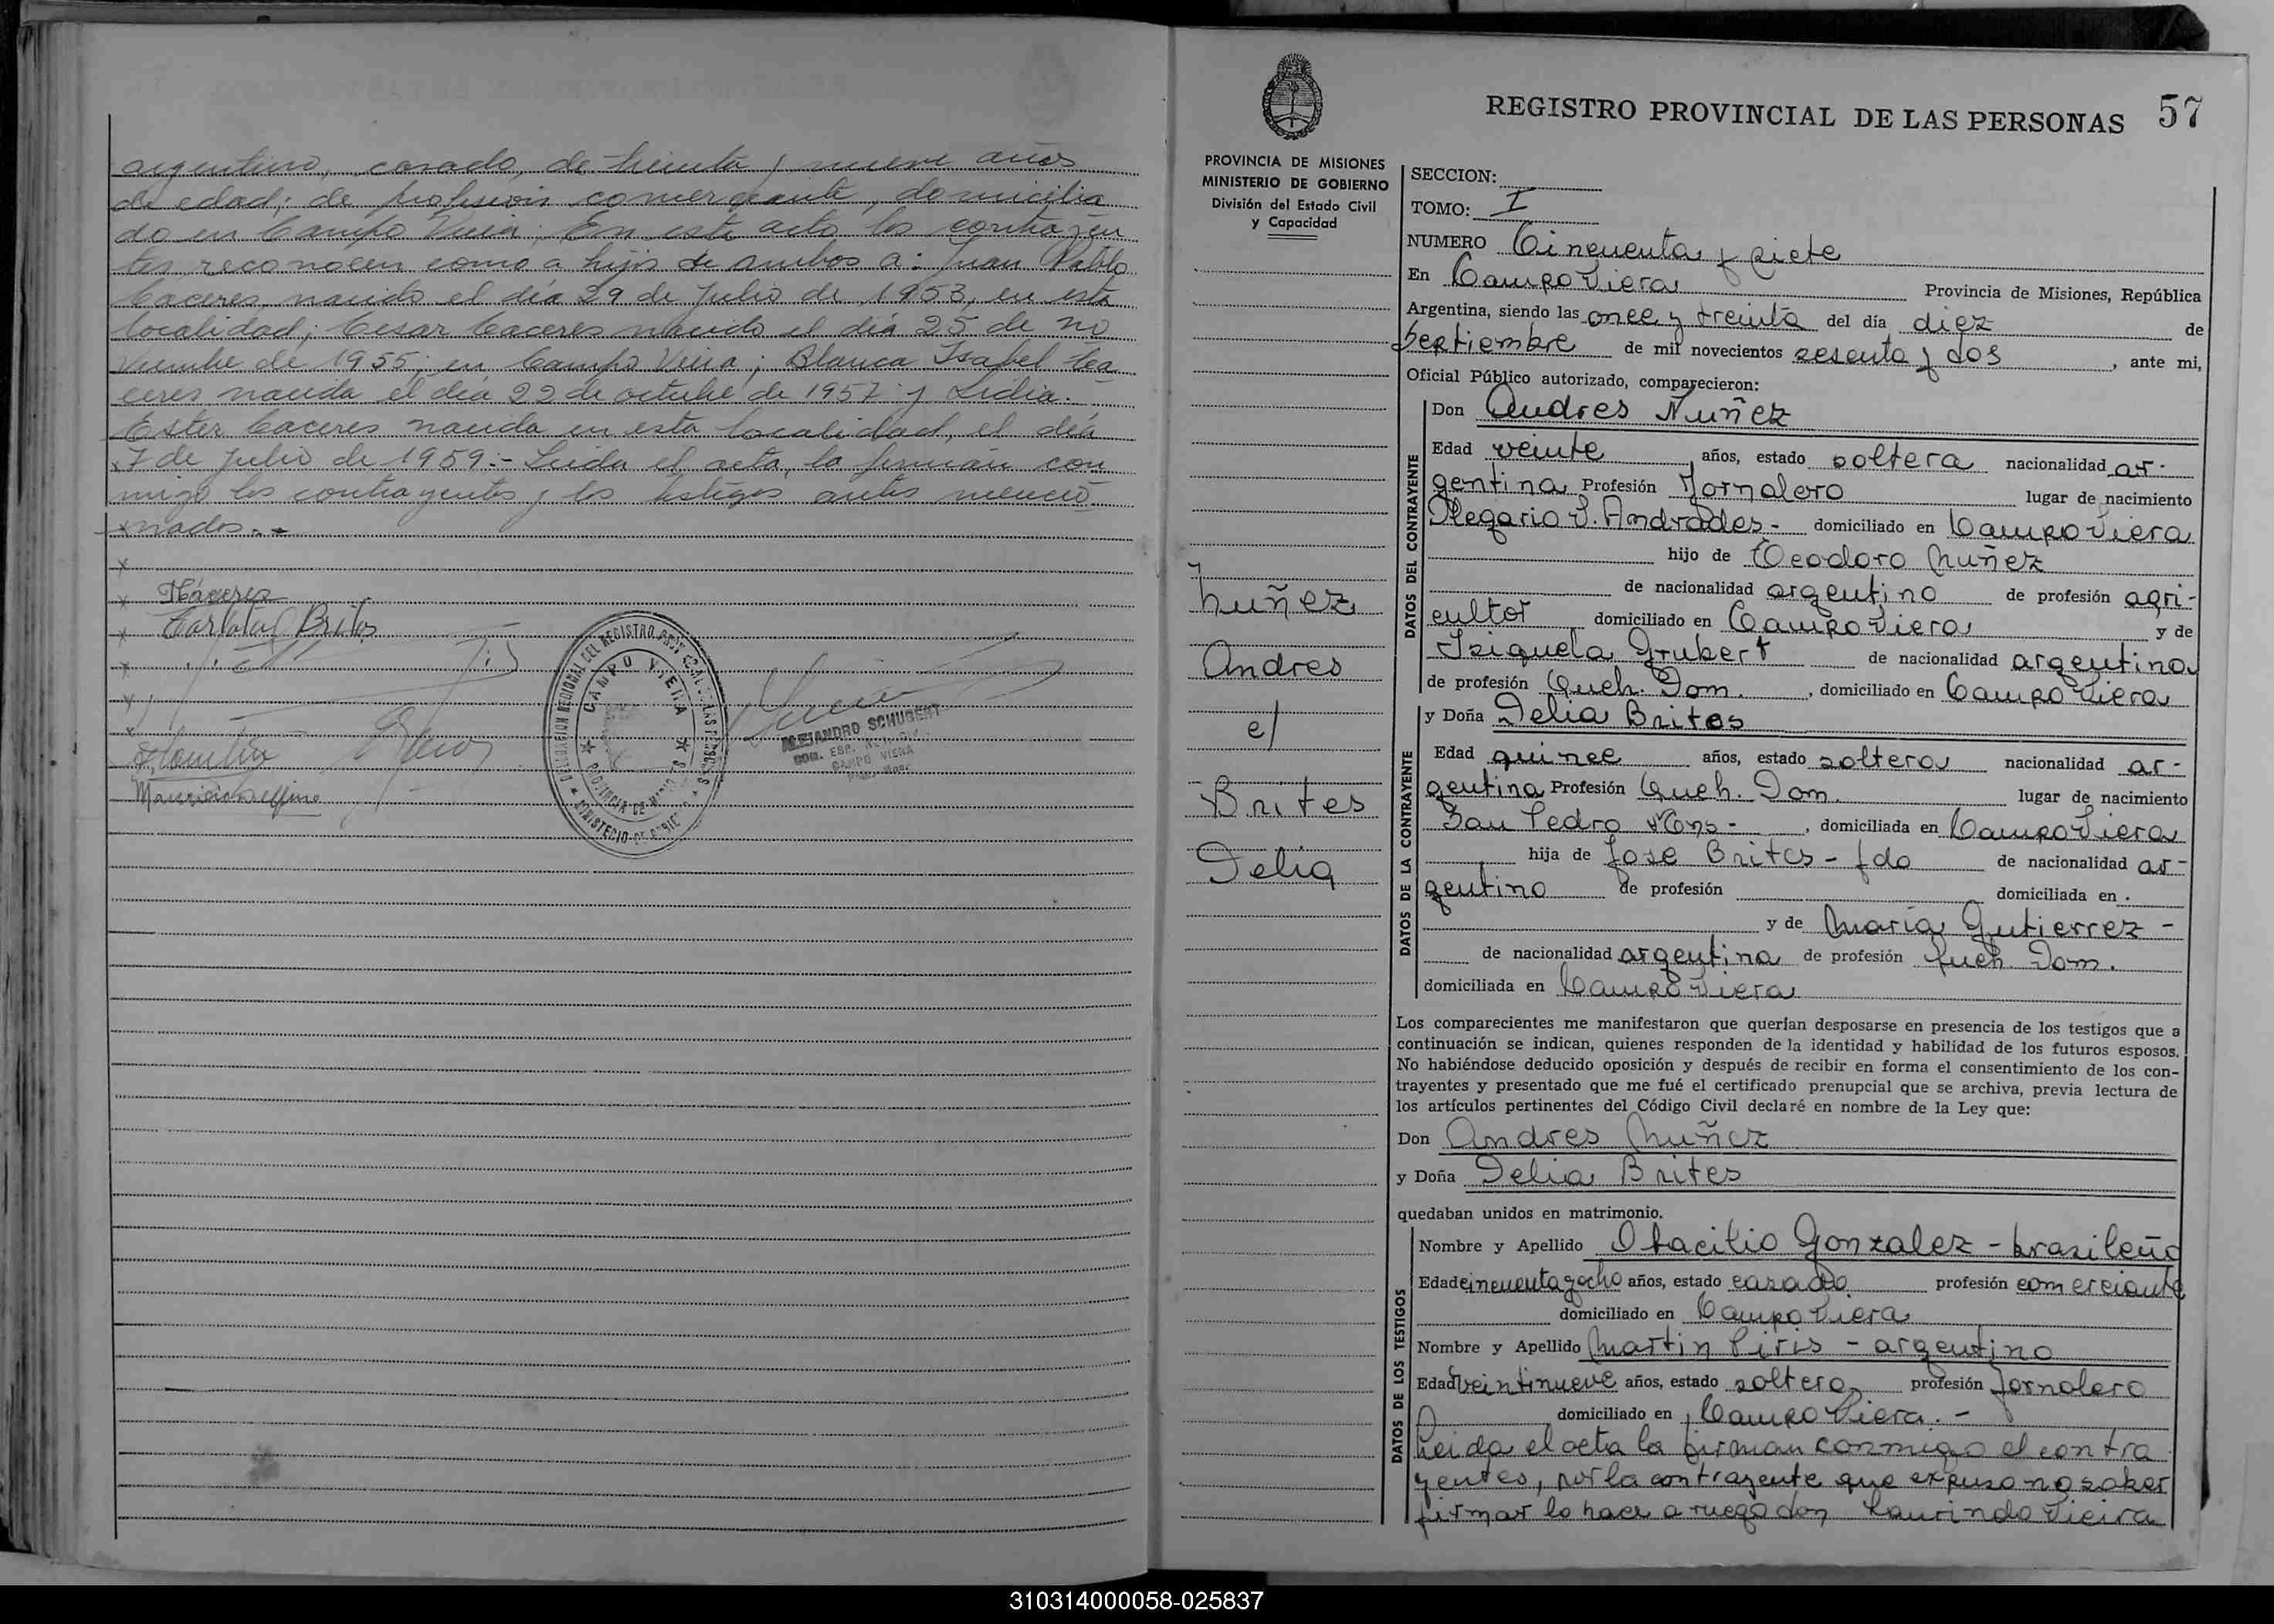 argentino, casado, de treinta y nueve años
de edad; de profesión comerciante, domicilia
do en Campo Viera; En este acto los contrayen
tes reconocen como a hijos de ambos a: Juan Pablo
Caceres nacido el día 29 de Julio de 1953, en esta
localidad; Cesar Caceres nacido el día 25 de no
viembre de 1955; en Campo Viera; Blanca Isabel Ca
ceres nacida el día 22 de octubre de 1957 y Lidia
Ester Caceres nacida en esta localidad, el día
7 de Julio de 1959.- Leida el acta, la firman con
migo los contrayentes y los testigos antes mencio
nados.-
Carlota Brites
DELEGACION REGIONAL DEL REGISTRO PROVINCIAL DE LAS PERSONAS
CAMPO VIERA
PROVINCIA DE MISIONES
MINISTERIO DE GOBIERNO
ALEJANDRO SCHUBERT
CAMPO VIERA
REGISTRO PROVINCIAL DE LAS PERSONAS 57
PROVINCIA DE MISIONES
MINISTERIO DE GOBIERNO
División del Estado Civil
y Capacidad
Nuñez
Andres
c/
Brites
Delia
SECCION:
TOMO: I
NUMERO Cincuenta y siete
En Campo Viera Provincia de Misiones, República
Argentina, siendo las once y treinta del día diez de
Septiembre de mil novecientos sesenta y dos, ante mi,
Oficial Público autorizado, comparecieron:
DATOS DEL CONTRAYENTE
Don Andres Nuñez
Edad veinte años, estado soltera nacionalidad ar-
gentina Profesión Jornalero lugar de nacimiento
Olegario V. Andrades- domiciliado en Campo Viera
hijo de Teodoro Nuñez
de nacionalidad argentino de profesión agri-
cultor domiciliado en Campo Viera y de
Isiquela Grubert de nacionalidad argentina
de profesión Queh. Dom., domiciliado en Campo Viera
DATOS DE LA CONTRAYENTE
y Doña Delia Brites
Edad quince años, estado soltera nacionalidad ar-
gentina Profesión Queh. Dom. lugar de nacimiento
San Pedro Mns-, domiciliada en Campo Viera
hija de Jose Brites - fdo de nacionalidad ar-
gentino de profesión domiciliada en.
y de María Gutierrez -
de nacionalidad argentina de profesión Queh. Dom.
domiciliada en Campo Viera
Los comparecientes me manifestaron que querían desposarse en presencia de los testigos que a
continuación se indican, quienes responden de la identidad y habilidad de los futuros esposos.
No habiéndose deducido oposición y después de recibir en forma el consentimiento de los con-
trayentes y presentado que me fué el certificado prenupcial que se archiva, previa lectura de
los artículos pertinentes del Código Civil declaré en nombre de la Ley que:
Don Andres Nuñez
y Doña Delia Brites
quedaban unidos en matrimonio.
DATOS DE LOS TESTIGOS
Nombre y Apellido Otacilio Gonzalez - brasileño
Edad cincuenta y ocho años, estado casado profesión comerciante
domiciliado en Campo Viera
Nombre y Apellido Martin Piris - argentino
Edad veintinueve años, estado soltero profesión Jornalero
domiciliado en Campo Viera.-
Leida el acta la firman conmigo el contra
yentes, por la contrayente que expuso no saber
firmar lo hace a ruego don Laurindo Vieira
310314000058-025837